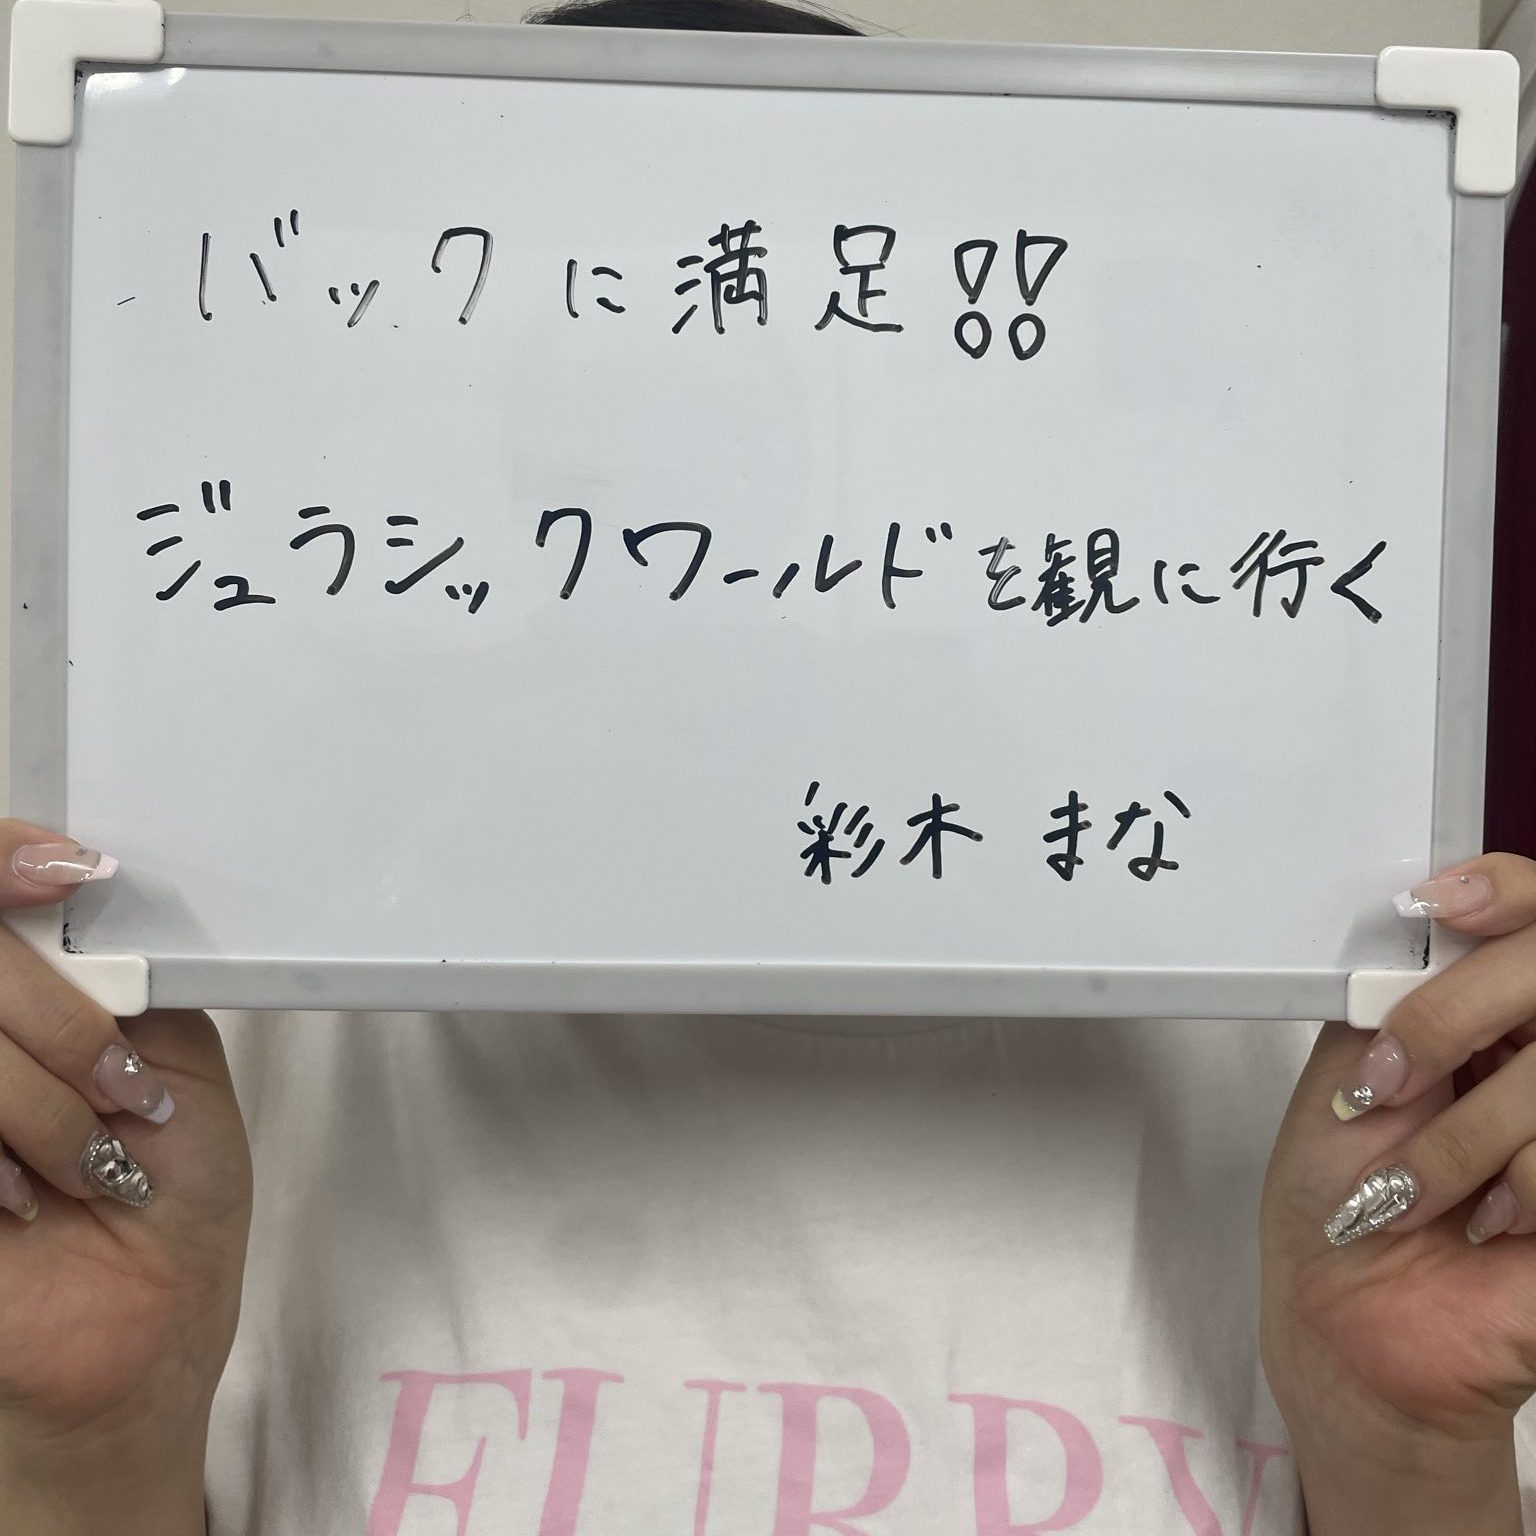 バックに満足!!
ジュラシックワールドを観に行く
彩木 まな
FURRY